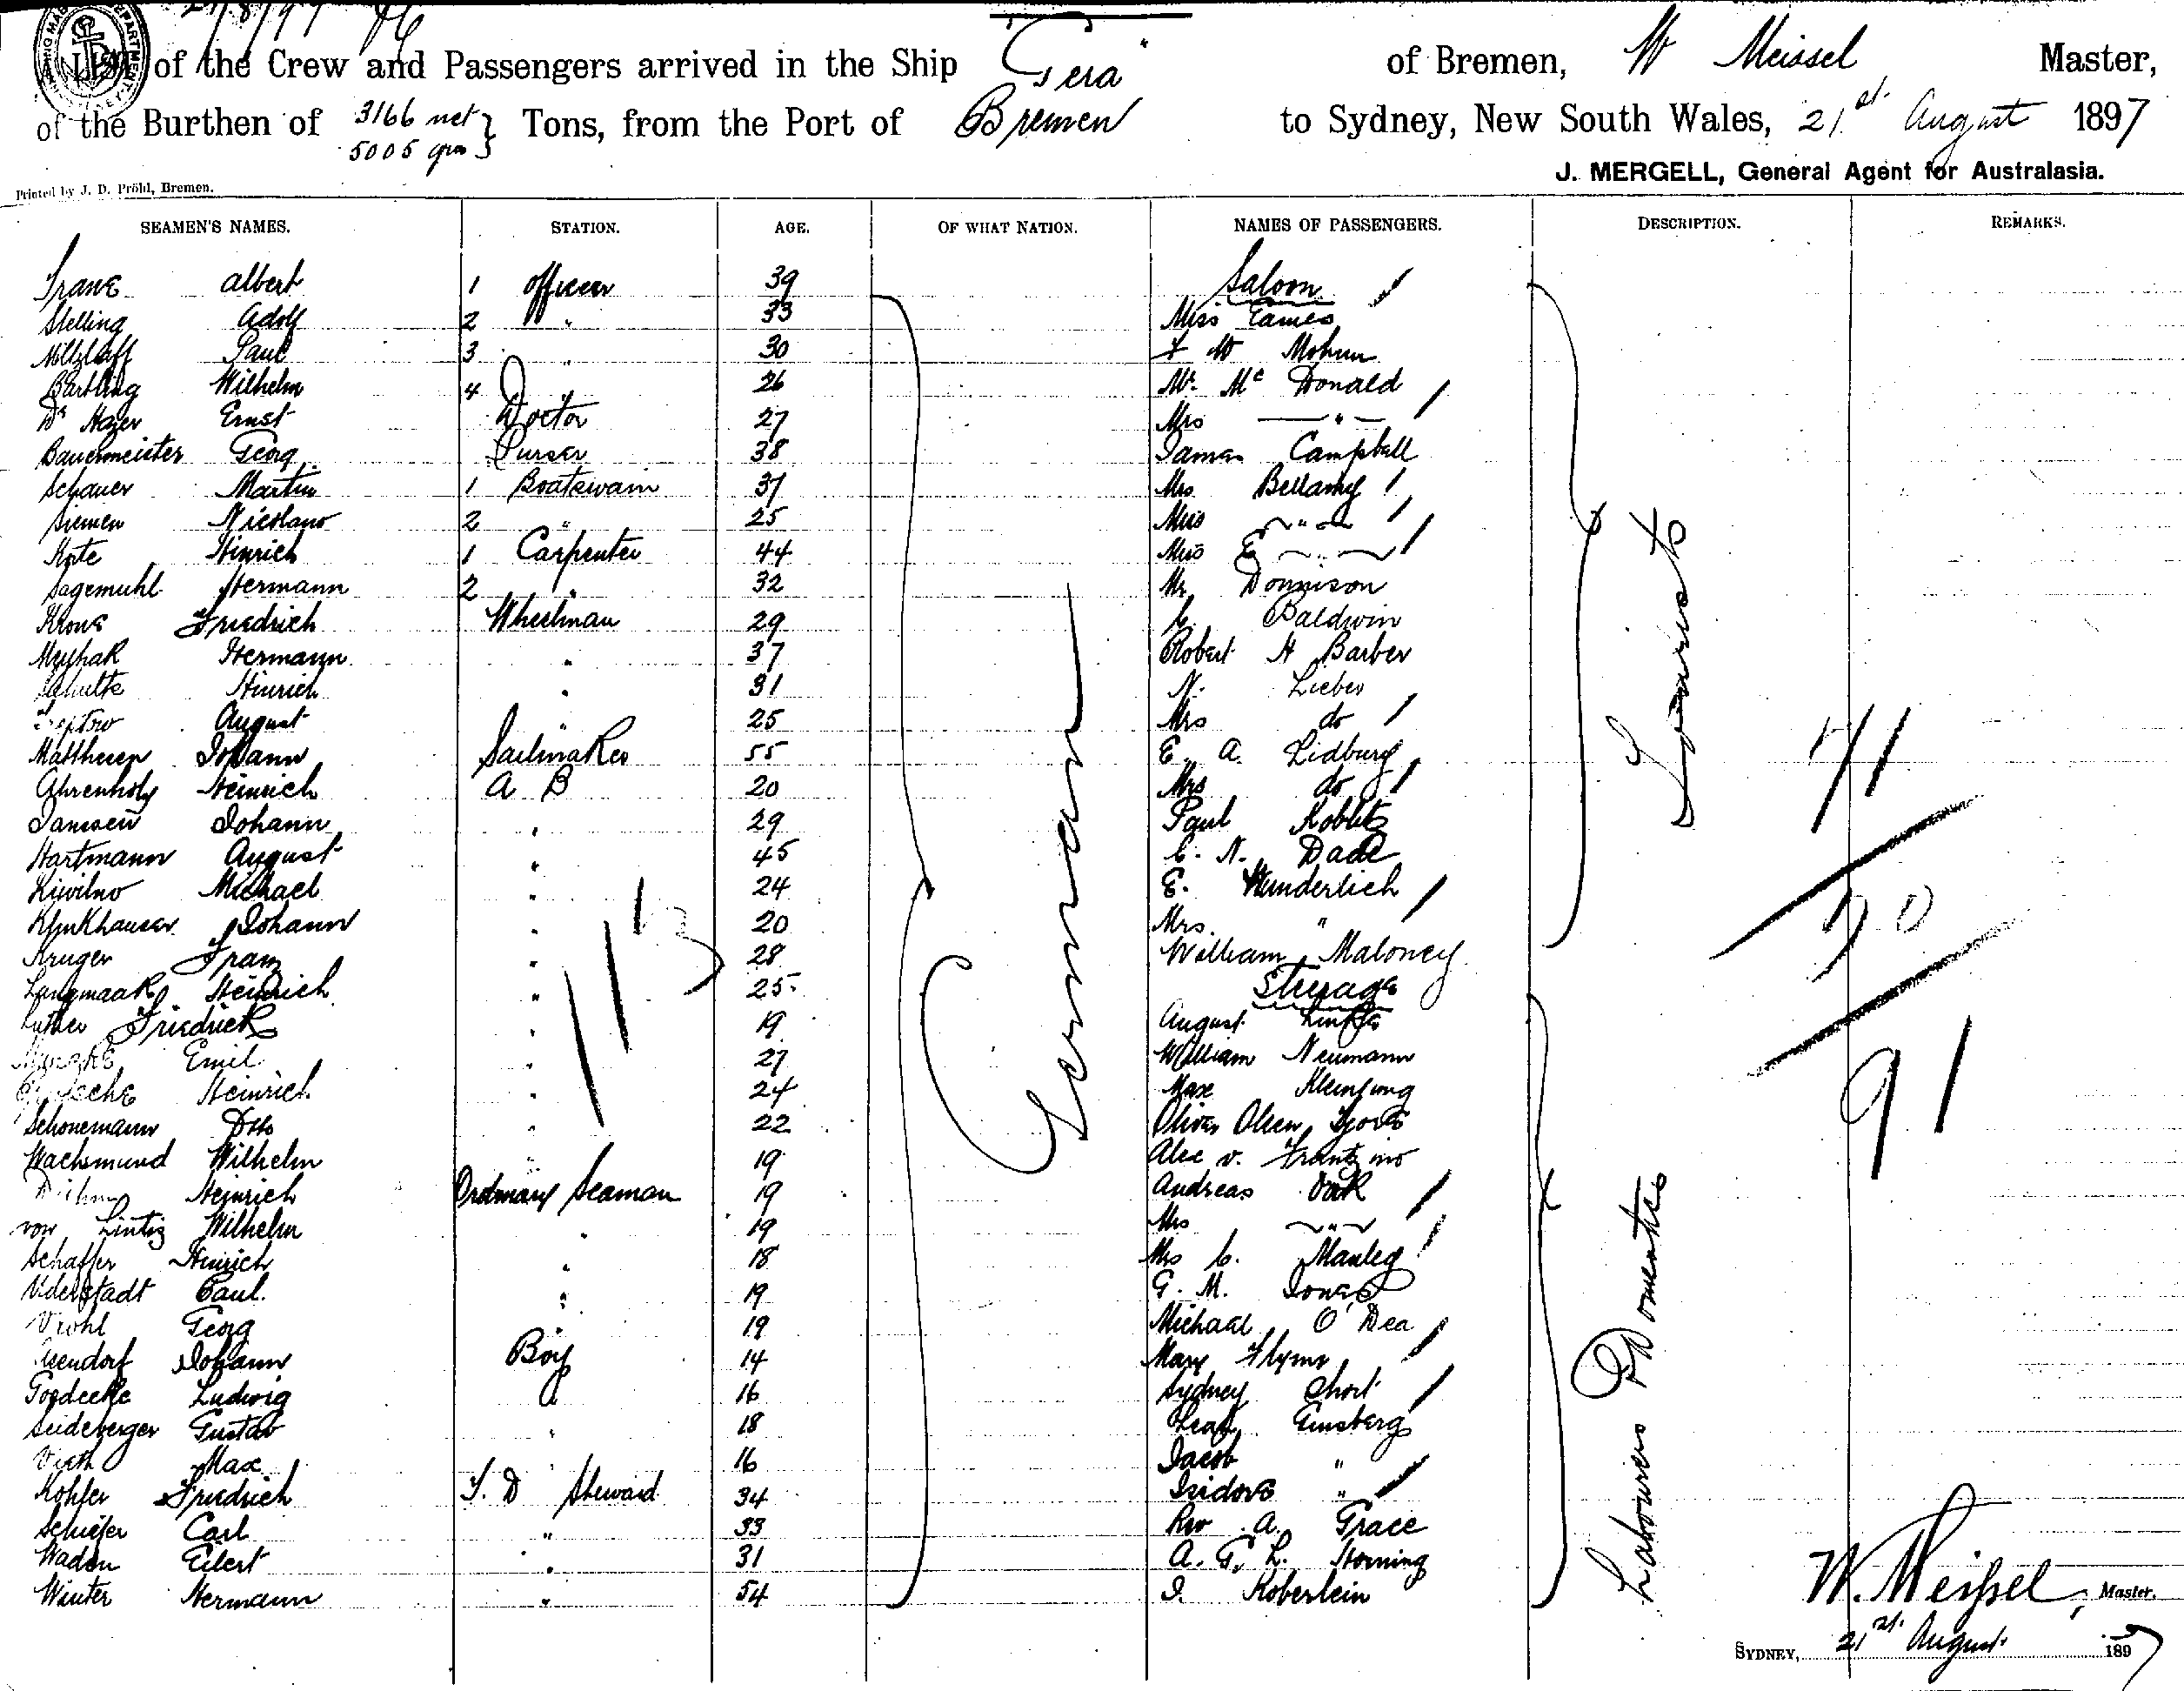 21/8/97
List of the Crew and Passengers arrived in the Ship "Gera" of Bremen, W Meissel Master,
of the Burthen of 3166 net 5005 gross Tons, from the Port of Bremen to Sydney, New South Wales, 21st August 1897
J. MERGELL, General Agent for Australasia.
Printed by J. D. Pröhl, Bremen.
SEAMEN'S NAMES. STATION. AGE. OF WHAT NATION. NAMES OF PASSENGERS. DESCRIPTION. REMARKS.
Saloon
Albert 1 Officer 39
Stelling Adolf 2 " 33 Miss Eames
Miltzlaff Paul 3 " 30 Mohun
Bartling Wilhelm 4 " 26 Mr. Mc Donald
Dr Hazer Ernst Doctor 27 Mrs "
Bauermeister Georg Purser 38 James Campbell
Schauer Martin 1 Boatswain 37 Mrs Bellamy
Siemen Nicolaus 2 " 25 Miss "
Kote Hinrich 1 Carpenter 44 Miss E "
Sagemuhl Hermann 2 32 Mr Donnison
Krons Friedrich Wheelman 29 C. Baldwin
Hermann " 37 Robert H Barber
Schulte Hinrich " 31 N. Lieber
August " 25 Mrs do
Matthiesen Johann Sailmaker 55 E. A. Lidbury
Ahrenholz Heinrich A B 20 Mrs do
Janssen Johann " 29 Paul Koblitz
Hartmann August " 45 C. N. Dade
Liwilno Michael " 24 E. Wunderlich
Klinkhauser Johann " 20 Mrs. "
Kruger Franz " 28 William Maloney
Langmaak Heinrich " 25 Steerage
Luther Friedrich " 19 August
Emil " 27 William Neumann
Heinrich " 24 Max Kleinjung
Schonemann Otto " 22 Oliver Olsen
Wachsmund Wilhelm " 19 Alex v.
Heinrich Ordinary Seaman 19 Andreas Voik
von Lintig Wilhelm " 19 Mrs "
Schaffer Hinrich " 18 Mrs C. Manley
Uderstadt Paul " 19 G. M. Jones
Georg " 19 Michael O'Dea
Johann Boy 14 Mary Flynn
Goedecke Ludwig " 16 Sydney Short
Seideberger Gustav " 18 Ginsberg
Vieth Max " 16 Jacob "
Kohler Friedrich Steward 34 Isidore "
Schiefer Carl " 33 Rev. A. Grace
Waden Eilert " 31 A. G. L. Horning
Winter Hermann " 54 J. Koberlein
113
German
Tourists
Labourers Domestics
71
20
91
W. Meissel, Master.
SYDNEY, 21st August 1897